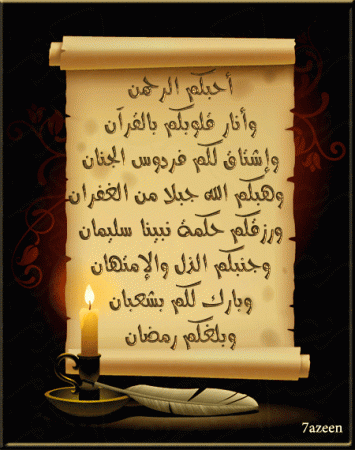 أحبكم الرحمن
وأنار قلوبكم بالقرآن
وإشتاق لكم فردوس الجنان
وهبكم الله جبلا من الغفران
ورزقكم حكمة نبينا سليمان
وجنبكم الذل والإمتهان
وبارك لكم بشعبان
وبلغكم رمضان
7azeen